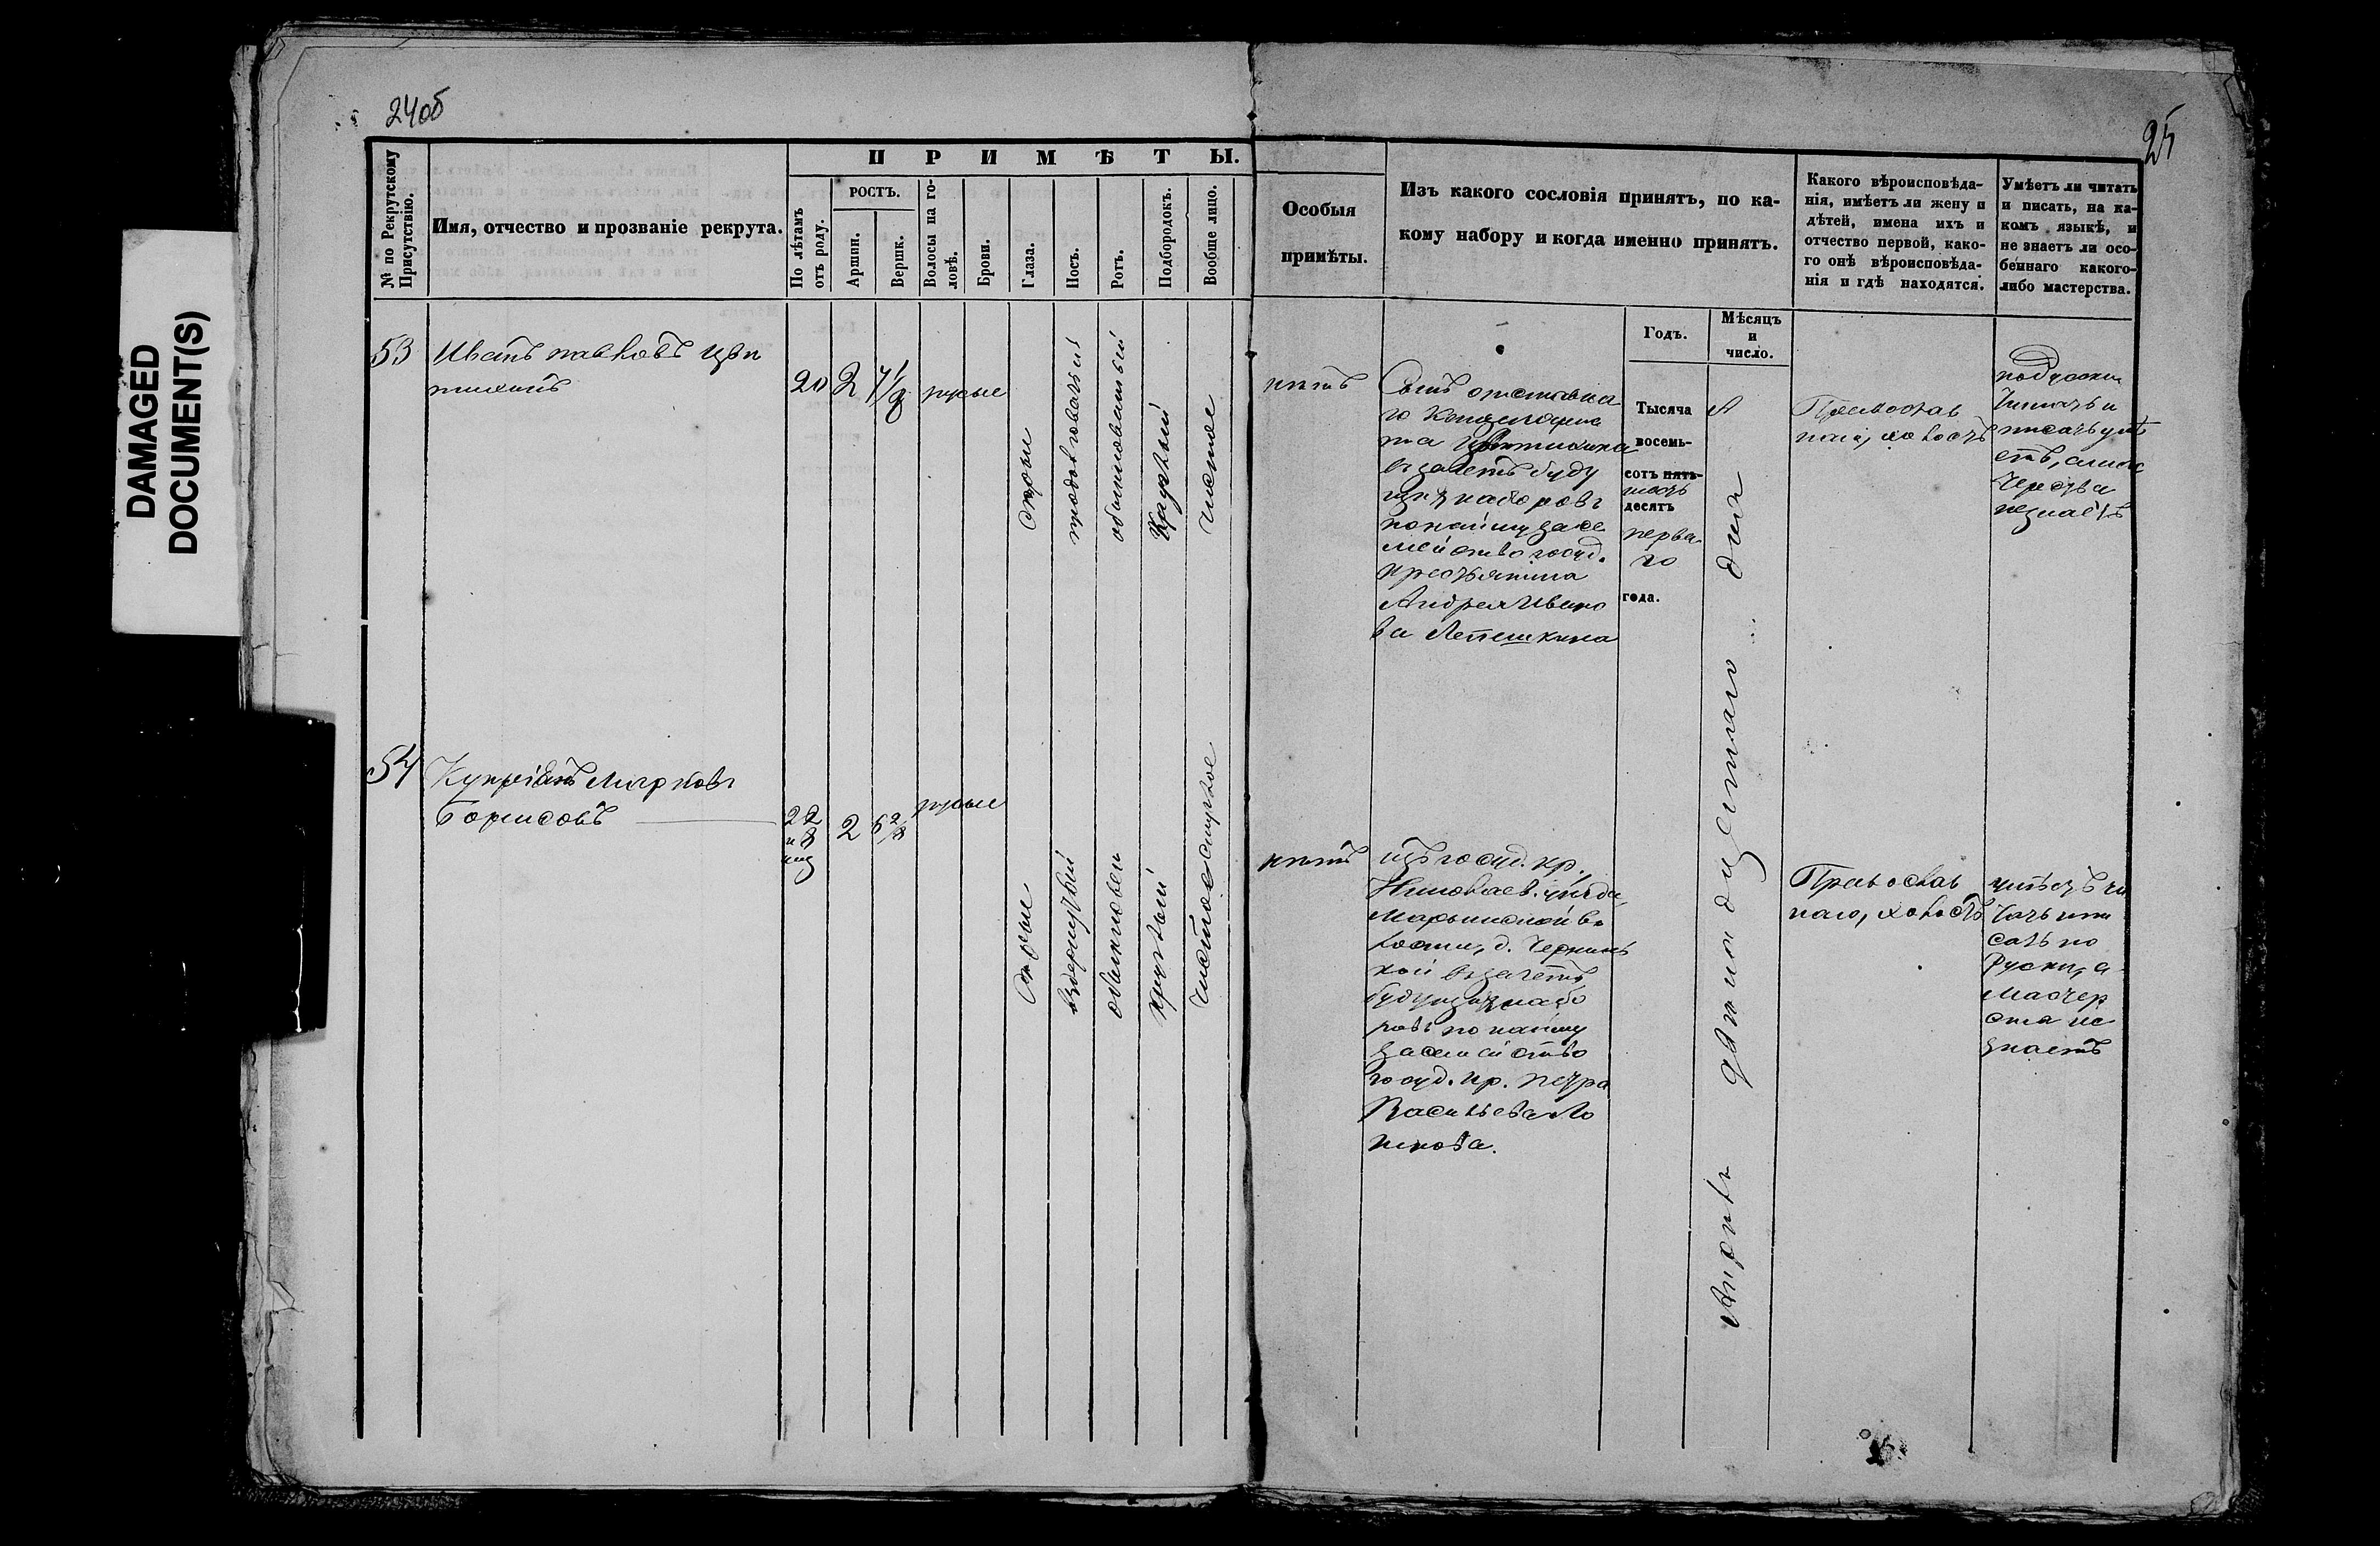 DAMAGED
DOCUMENT(S)
24об
25
№ по Рекрутскому
Присутствію.
Имя, отчество и прозваніе рекрута.
ПРИМѢТЫ.
По лѣтамъ
отъ роду.
РОСТЪ.
Аршин.
Вершк.
Волосы на го-
ловѣ.
Брови.
Глаза.
Носъ.
Ротъ.
Подбородокъ.
Вообще лицо.
Особыя
примѣты.
Изъ какого сословія принятъ, по ка-
кому набору и когда именно принятъ.
Какого вѣроисповѣда-
нія, имѣетъ ли жену и
дѣтей, имена ихъ и
отчество первой, како-
го онѣ вѣроисповѣда-
нія и гдѣ находятся.
Умѣетъ ли читать
и писать, на ка-
комъ языкѣ, и
не знаетъ ли осо-
беннаго какого-
либо мастерства.
Годъ.
Мѣсяцъ
и
число.
53
Иванъ Павловъ
20
2
7 1/8
русые
сѣрые
продолговатый
обыкновенный
круглый
чистое
нѣтъ
Сынъ отставна
го
въ зачетъ буду
щихъ наборовъ
по найму за се
мейство госуд.
крестьянина
Андрея Ивано
ва Лепешкина
Тысяча
восемь-
сотъ пять-
шесть
десятъ
перва-
го
года.
Апрѣль дня
Православ
наго, холостъ
Читать и
писать умѣ
етъ, а мас
терства
незнаетъ
54
Купріянъ Марковъ
Борисовъ
22
и 8
2
6 2/8
русые
сѣрые
вздернутый
обыкновен
круглый
чистое смуглое
нѣтъ
изъ госуд. кр.
Николаев. уѣзда,
Марьинской во
лости, д.
въ зачетъ
будущихъ набо
ровъ по найму
за семейство
госуд. кр. Петра
Васильева Ло
шкова.
Православ
наго, холостъ
умѣетъ чи
тать и пи
сать по
Руски, а
Мастер
ства не
знаетъ